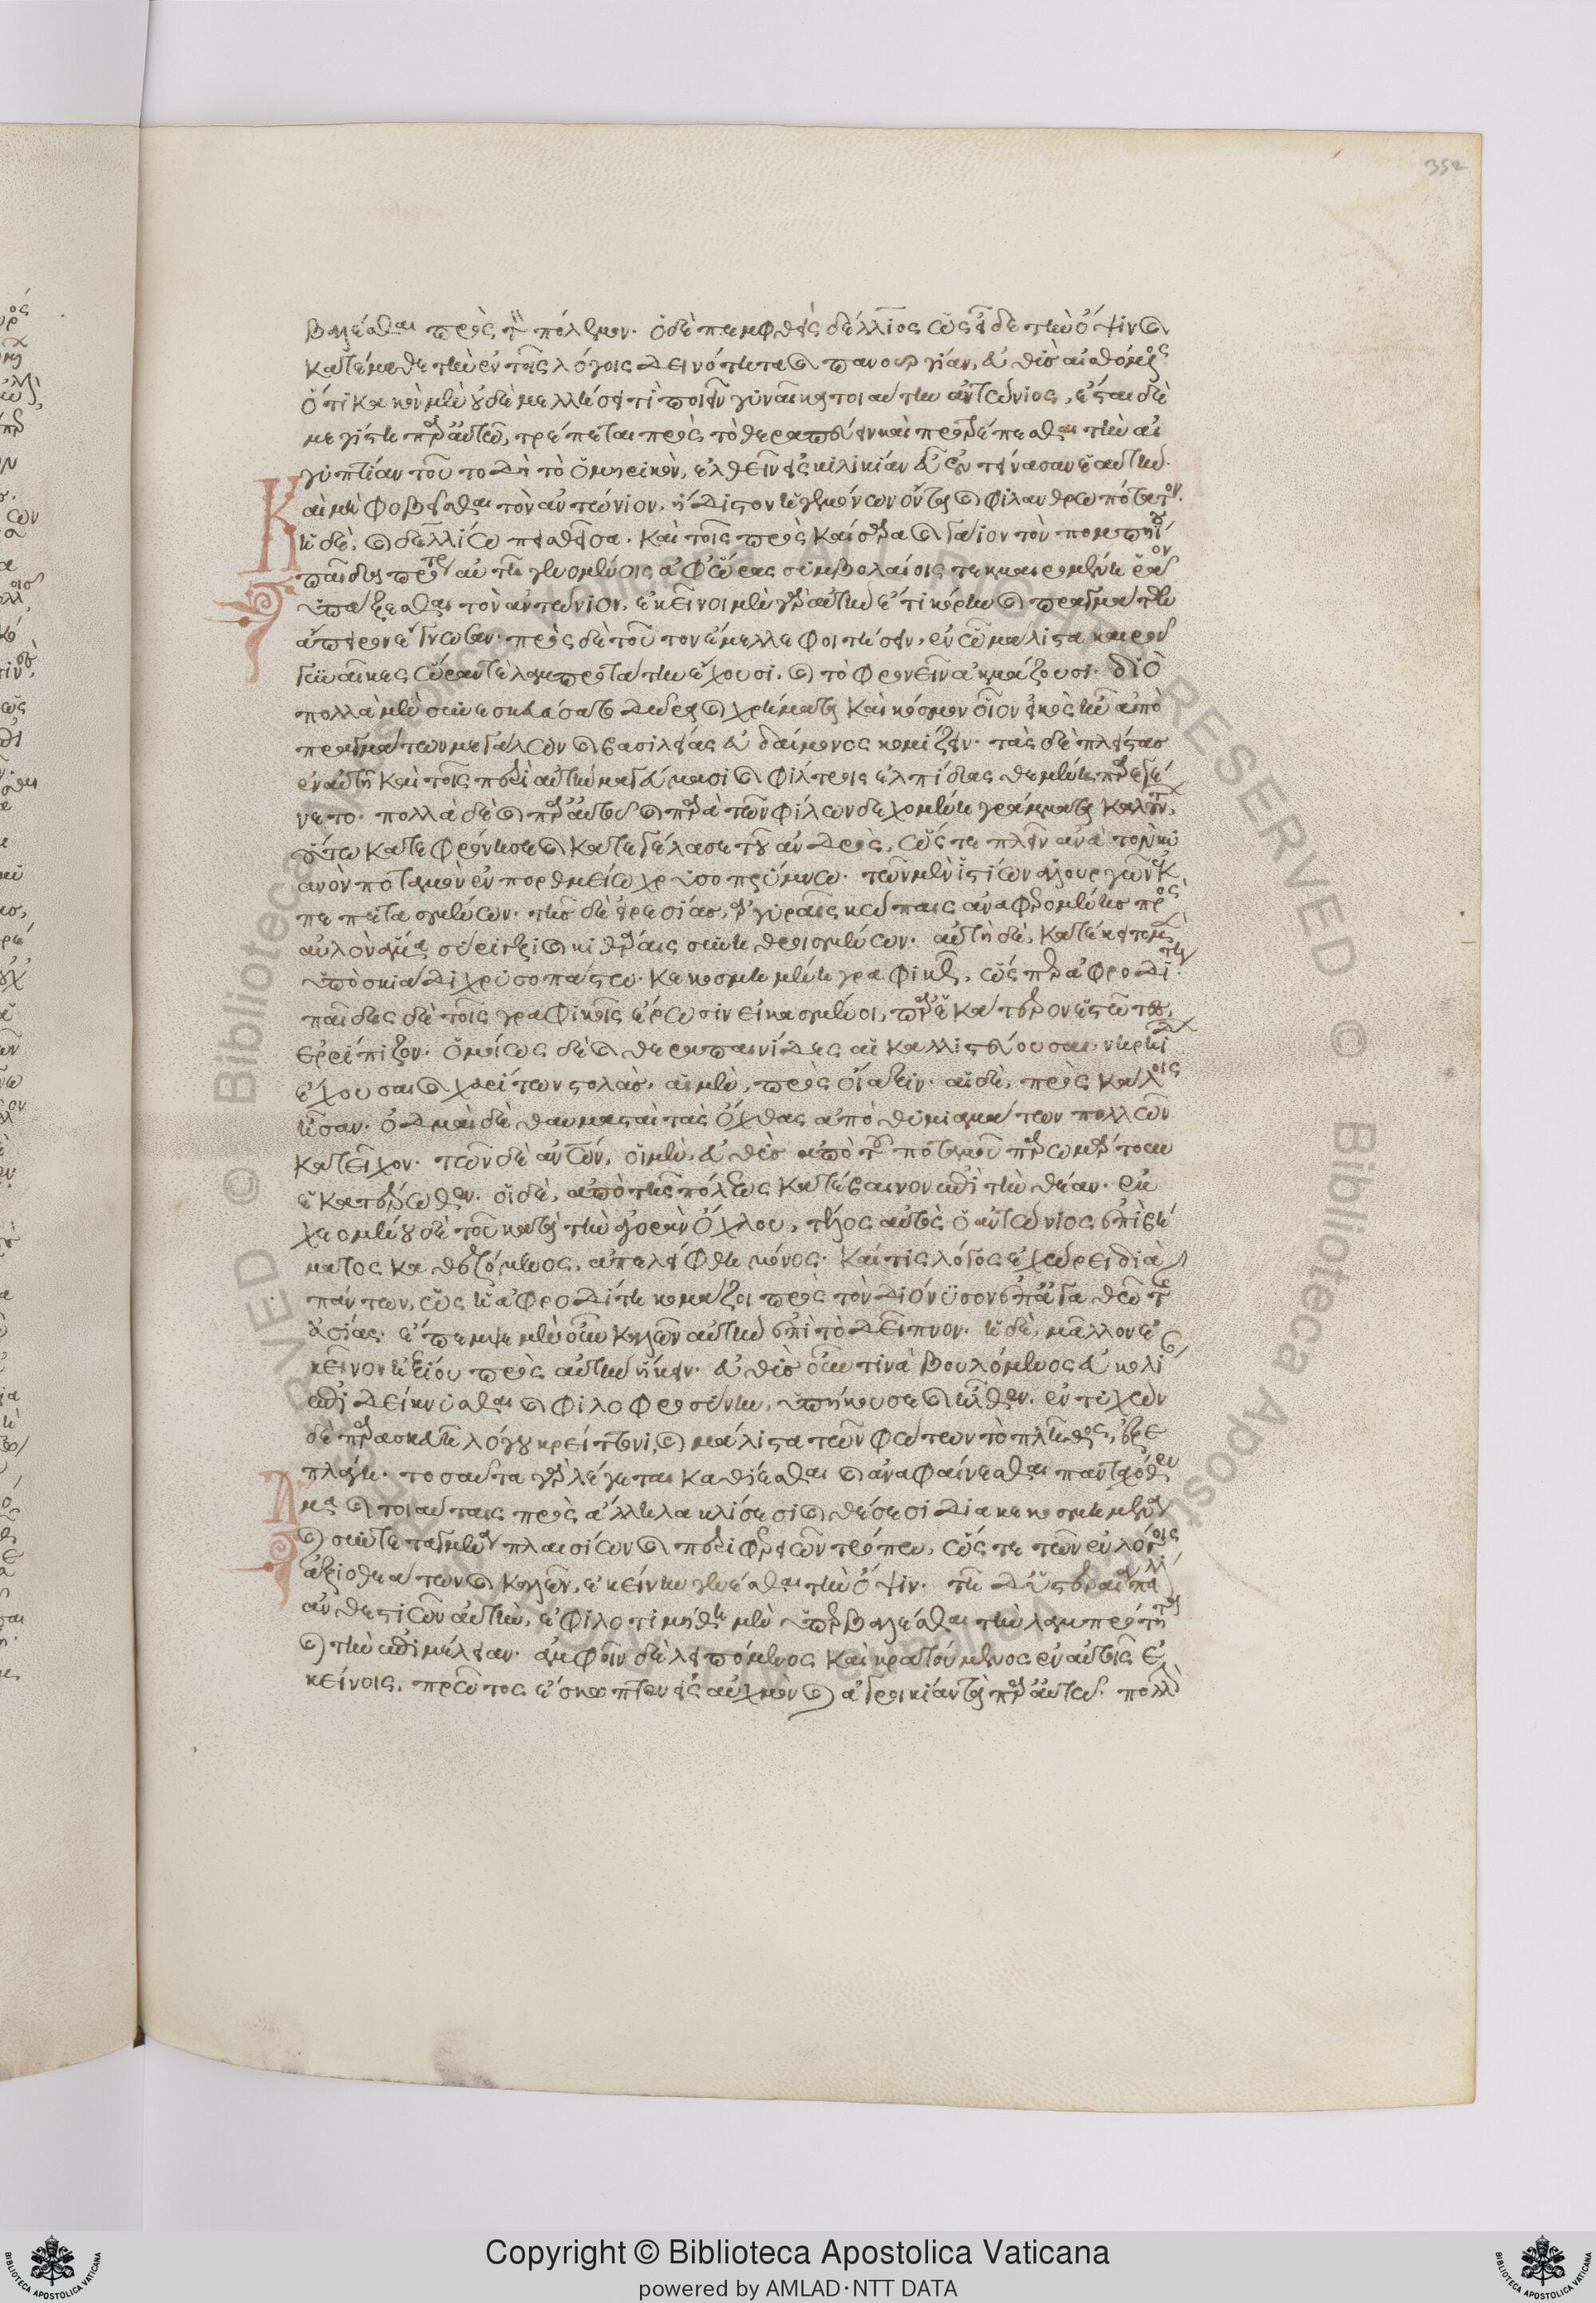 352
βαλέσθαι πρὸς τὸν πόλεμον. ὁ δὲ πεμφθεὶς δέλλιος ὡς εἶδε τὴν ὄψιν καὶ
κατέμαθε τὴν ἐν τοῖς λόγοις δεινότητα καὶ πανουργίαν, εὐθὺς αἰσθόμενος
ὅτι κακὸν μὲν οὐδὲ μελλήσει τι ποιεῖν γυναῖκα τοιαύτην ἀντώνιος, ἔσται δὲ
μεγίστη παρ' αὐτῷ, τρέπεται πρὸς τὸ θεραπεύειν καὶ προτρέπεσθαι τὴν αἰ
γυπτίαν τοῦτο δὴ τὸ ὁμηρικὸν, ἐλθεῖν εἰς κιλικίαν εὖ ἐντύνασαν ἑαυτήν.
Καὶ μὴ φοβεῖσθαι τὸν ἀντώνιον, ἥδιστον ἡγεμόνων ὄντα καὶ φιλανθρωπότατον.
ἡ δὲ, καὶ δελλίῳ πεισθεῖσα. καὶ τοῖς πρὸς καίσαρα καὶ γάιον τὸν πομπηΐου
παῖδα πρότερον αὐτῇ γενομένοις ἀφ' ὥρας συμβολαίοις τεκμαιρομένη ῥᾷον
ὑπάξεσθαι τὸν ἀντώνιον. ἐκεῖνοι μὲν γὰρ αὐτὴν ἔτι κόρην καὶ πραγμάτων
ἄπειρον ἔγνωσαν. πρὸς δὲ τοῦτον ἔμελλε φοιτήσειν, ἐν ᾧ μάλιστα καιρῷ
γυναῖκες ὥραν τὲ λαμπροτάτην ἔχουσι. καὶ τὸ φρονεῖν ἀκμάζουσι. διὸ
πολλὰ μὲν συνεσκευάσατο δῶρα καὶ χρήματα καὶ κόσμον οἷον εἰκὸς ἦν ἀπὸ
πραγμάτων μεγάλων καὶ βασιλείας εὐδαίμονος κομίζειν. τὰς δὲ πλείστας
ἐν αὑτῇ καὶ τοῖς περὶ αὑτὴν μαγγανεύμασι καὶ φίλτροις ἐλπίδας θεμένη παρεγέ
νετο. πολλὰ δὲ καὶ παρ' αὐτοῦ καὶ παρὰ τῶν φίλων δεχομένη γράμματα καλούντων,
οὕτω κατεφρόνησε καὶ κατεγέλασε τοῦ ἀνδρὸς, ὥστε πλεῖν ἀνὰ τὸν κύ
δνον ποταμὸν ἐν πορθμείῳ χρυσοπρύμνῳ. τῶν μὲν ἱστίων ἁλουργῶν ἐκ
πεπετασμένων. τῆς δὲ εἰρεσίας, ἀργυραῖς κώπαις ἀναφερομένης πρὸς
αὐλὸν ἅμα σύριγξι καὶ κιθάραις συνηρμοσμένων. αὐτὴ δὲ, κατέκειτο μὲν
ὑπὸ σκιάδι χρυσοπάστῳ. κεκοσμημένη γραφικῶς, ὥσπερ ἀφροδίτη.
παῖδες δὲ τοῖς γραφικοῖς ἔρωσιν εἰκασμένοι, παρ' ἑκάτερον ἑστῶτες,
ἐρρίπιζον. ὁμοίως δὲ καὶ θεραπαινίδες αἱ καλλιστεύουσαι νηρηΐδων
ἔχουσαι καὶ χαρίτων στολὰς, αἱ μὲν, πρὸς οἴαξιν. αἱ δὲ, πρὸς κάλοις
ἦσαν. ὀδμαὶ δὲ θαυμασταὶ τὰς ὄχθας ἀπὸ θυμιαμάτων πολλῶν
κατεῖχον. τῶν δὲ ἀνθρώπων, οἱ μὲν, εὐθὺς ἀπὸ τοῦ ποταμοῦ παρωμάρτουν
ἑκατέρωθεν. οἱ δὲ, ἀπὸ τῆς πόλεως κατέβαινον ἐπὶ τὴν θέαν. ἐκ
χεομένου δὲ τοῦ κατὰ τὴν ἀγορὰν ὄχλου, τέλος αὐτὸς ὁ ἀντώνιος ἐπὶ βή
ματος καθεζόμενος, ἀπελείφθη μόνος. καί τις λόγος ἐχώρει διὰ
πάντων, ὡς ἡ ἀφροδίτη κωμάζοι πρὸς τὸν διόνυσον ἐπ' ἀγαθῷ τῆς
ἀσίας. ἔπεμψε μὲν οὖν καλῶν αὐτὴν ἐπὶ τὸ δεῖπνον. ἡ δὲ, μᾶλλον ἐ
κεῖνον ἠξίου πρὸς αὑτὴν ἥκειν. εὐθὺς οὖν τινὰ βουλόμενος εὐκολίαν
ἐπιδείκνυσθαι καὶ φιλοφροσύνην, ὑπήκουσε καὶ ἦλθεν. ἐντυχὼν
δὲ παρασκευῇ λόγου κρείττονι, καὶ μάλιστα τῶν φώτων τὸ πλῆθος, ἐξε
πλάγη. τοσαῦτα γὰρ λέγεται καθίεσθαι καὶ ἀναφαίνεσθαι πανταχόθεν
ἅμα καὶ τοιαύταις πρὸς ἄλληλα κλίσεσι καὶ θέσεσι διακεκοσμημένα
καὶ συντεταγμένα πλαισίων καὶ περιφερειῶν τρόπῳ, ὥστε τῶν ἐν ὀλίγοις
ἀξιοθεάτων καὶ καλῶν, ἐκείνην γενέσθαι τὴν ὄψιν. τῇ δ' ὑστεραίᾳ πάλιν
ἀνθεστιῶν αὐτὴν, ἐφιλοτιμήθη μὲν ὑπερβαλέσθαι τὴν λαμπρότητα
καὶ τὴν ἐπιμέλειαν. ἀμφοῖν δὲ λειπόμενος καὶ κρατούμενος ἐν αὐτοῖς ἐ
κείνοις, πρῶτος ἔσκωπτεν εἰς αὐχμὸν καὶ ἀγροικίαν τὰ παρ' αὑτῷ. πολλὴ
Copyright © Biblioteca Apostolica Vaticana
powered by AMLAD·NTT DATA